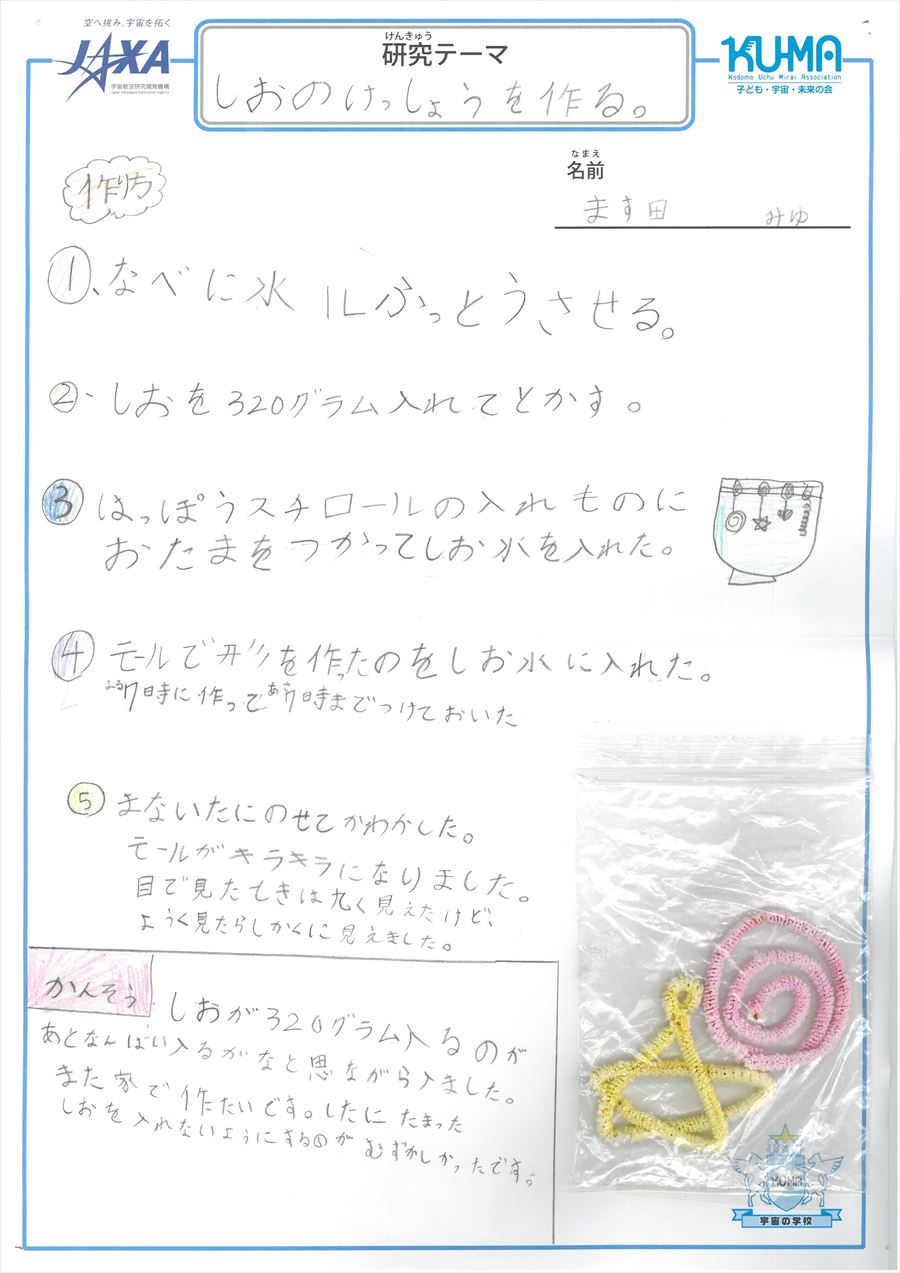 空へ挑み、宇宙を拓く
JAXA
宇宙航空研究開発機構
Japan Aerospace Exploration Agency
けんきゅう
研究テーマ
しおのけっしょうを作る。
KU-MA
Kodomo Uchu Mirai Association
子ども・宇宙・未来の会
作り方
なまえ
名前
ます田 みゆ
①、なべに水 1Lふっとうさせる。
②・しおを320グラム入れてとかす。
③ はっぽうスチロールの入れものに
おたまをつかってしお水を入れた。
④ モールで形を作ったのをしお水に入れた。
よる7時に作ってあさ7時までつけておいた
⑤ まないたにのせてかわかした。
モールがキラキラになりました。
目で見たときは丸く見えたけど、
ようく見たらしかくに見えました。
かんそう
しおが320グラム入るのが
あとなんばい入るかなと思ながら入ました。
また家で作たいです。したにたまった
しおを入れないようにするのがむずかしかったです。
KUMA
宇宙の学校